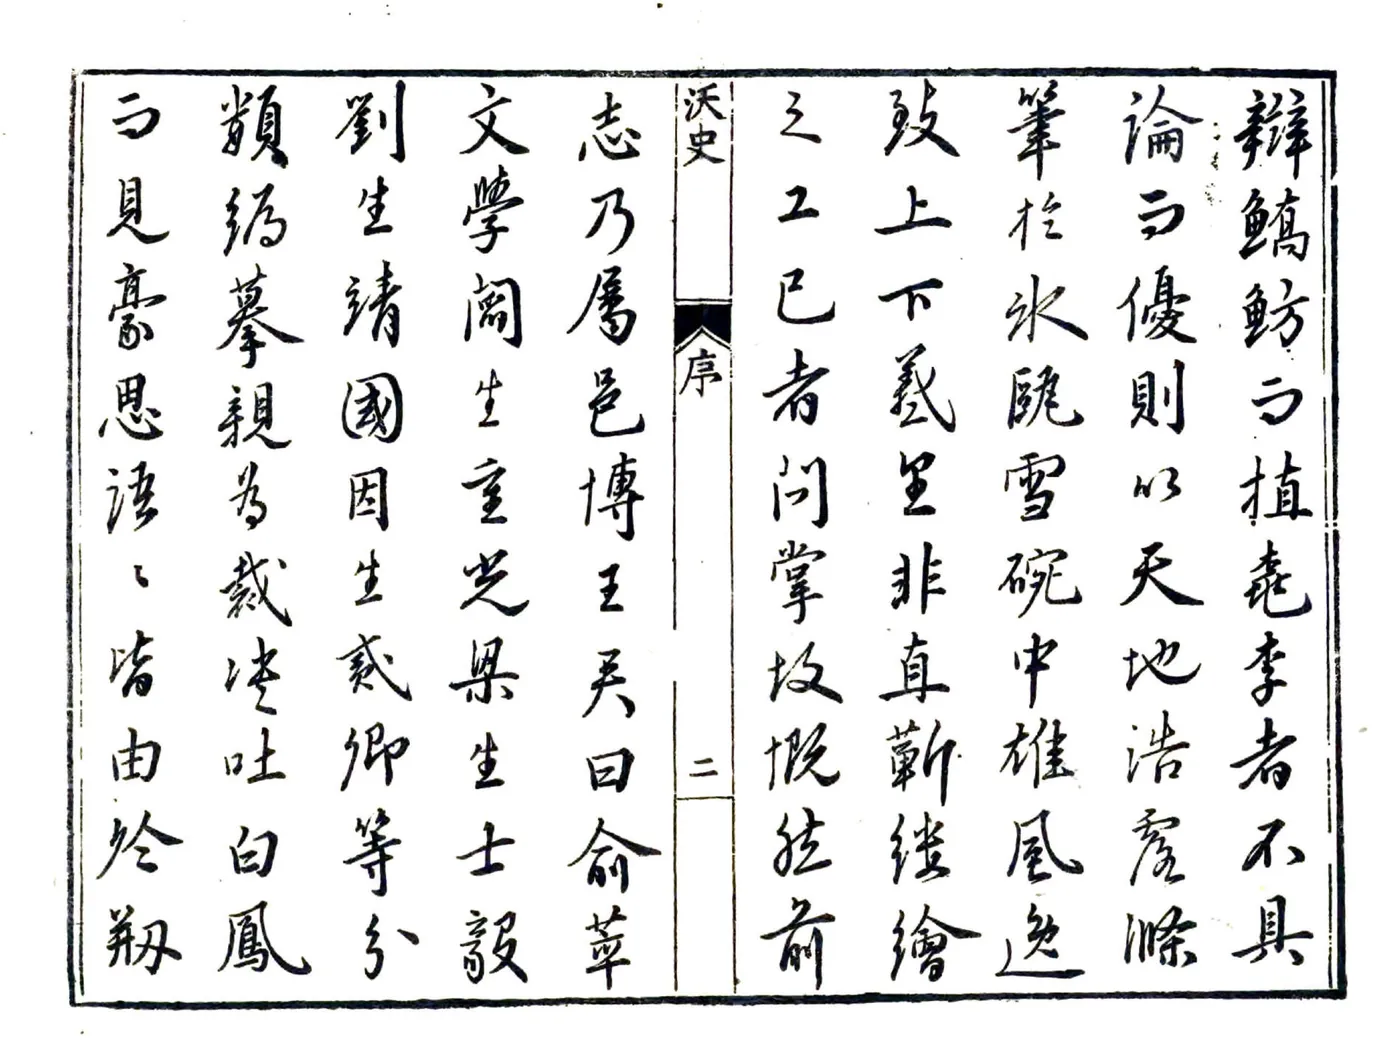 辯鱎魴而植堯李者不具
論而優則以天地浩露滌
筆於氷甌雪碗中雄風逸
致上下羲皇非直蘄縷繪
之工已者問掌故慨然前
沃史
序
二
志乃屬邑博王君曰俞萃
文學閻生重光梁生士毅
劉生靖國因生貳卿等分
類編摹親為裁决吐白鳳
而見豪思語〻皆由於剏